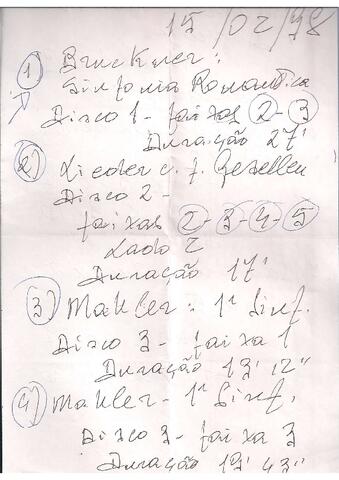 15/02/98
1) Bruckner:
Sinfonia Romantica
Disco 1 - faixas 2-3
Duração 27'
2) Lieder e. f. Gesellen
Disco 2 -
faixas 2-3-4-5
Lado 2
Duração 17'
3) Mahler: 1ª Sinf.
Disco 3 - faixa 1
Duração 13' 12"
4) Mahler - 1ª Sinf.
Disco 3 - faixa 3
Duração 10' 43"